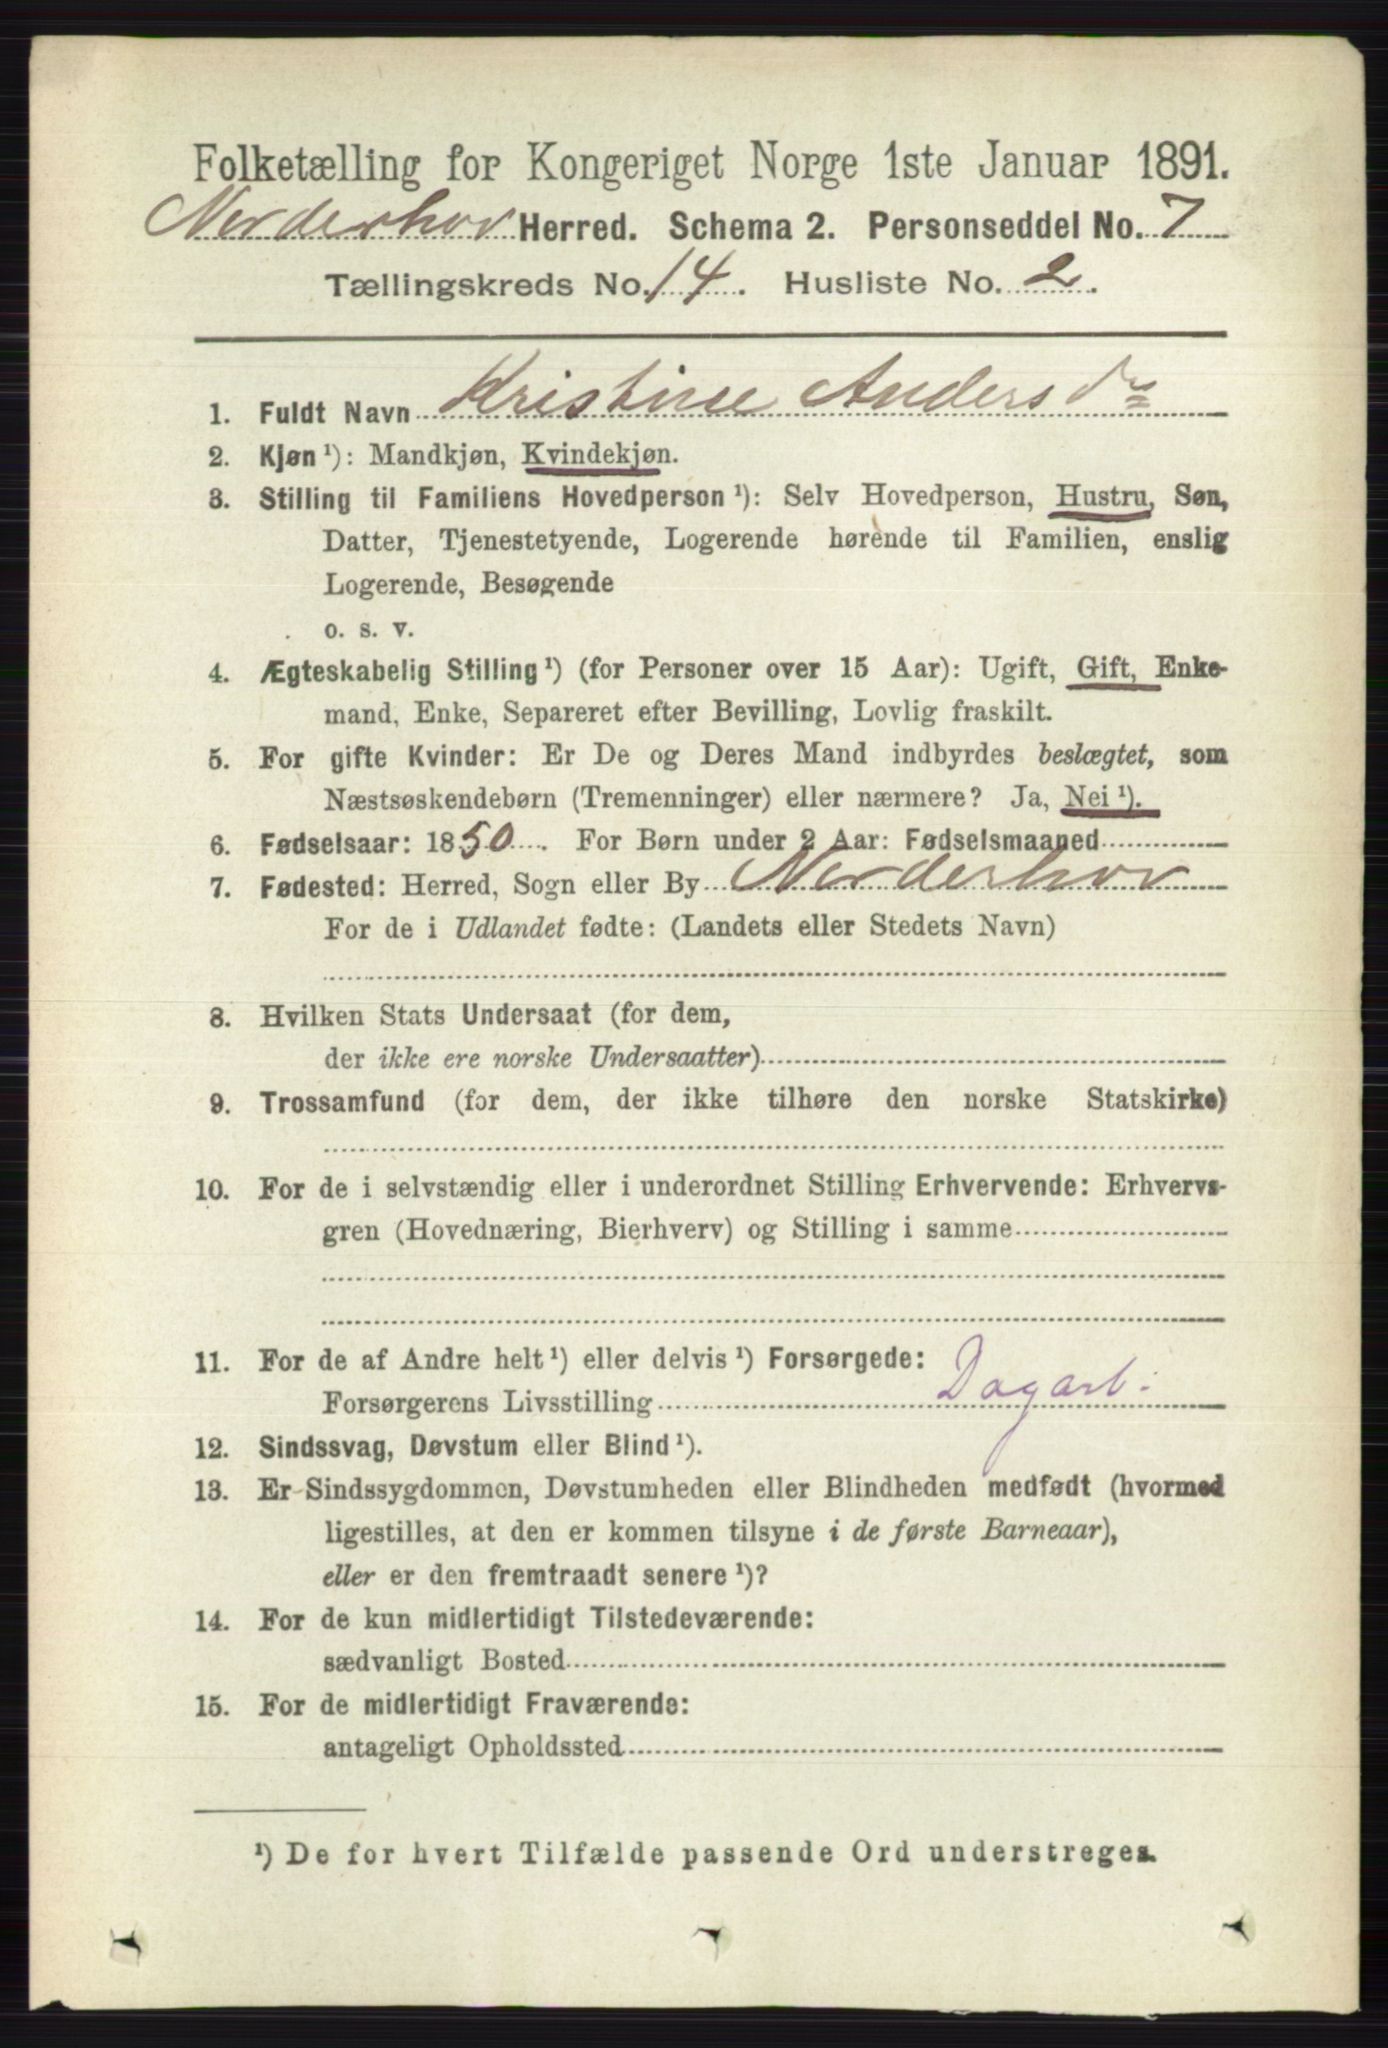 Folketælling for Kongeriget Norge 1ste Januar 1891.
Norderhov Herred. Schema 2. Personseddel No. 7
Tællingskreds No. 14. Husliste No. 2.
1. Fuldt Navn Kristine Andersdr
2. Kjøn ¹): Mandkjøn, Kvindekjøn.
3. Stilling til Familiens Hovedperson ¹): Selv Hovedperson, Hustru, Søn,
Datter, Tjenestetyende, Logerende hørende til Familien, enslig
Logerende, Besøgende
o. s. v.
4. Ægteskabelig Stilling ¹) (for Personer over 15 Aar): Ugift, Gift, Enke-
mand, Enke, Separeret efter Bevilling, Lovlig fraskilt.
5. For gifte Kvinder: Er De og Deres Mand indbyrdes beslægtet, som
Næstsøskendebørn (Tremenninger) eller nærmere? Ja, Nei ¹).
6. Fødselsaar: 1850. For Børn under 2 Aar: Fødselsmaaned
7. Fødested: Herred, Sogn eller By Norderhov
For de i Udlandet fødte: (Landets eller Stedets Navn)
8. Hvilken Stats Undersaat (for dem,
der ikke ere norske Undersaatter)
9. Trossamfund (for dem, der ikke tilhøre den norske Statskirke)
10. For de i selvstændig eller i underordnet Stilling Erhvervende: Erhvervs-
gren (Hovednæring, Bierhverv) og Stilling i samme
11. For de af Andre helt ¹) eller delvis ¹) Forsørgede:
Forsørgerens Livsstilling Dagarb.
12. Sindssvag, Døvstum eller Blind ¹).
13. Er Sindssygdommen, Døvstumheden eller Blindheden medfødt (hvormed
ligestilles, at den er kommen tilsyne i de første Barneaar),
eller er den fremtraadt senere ¹)?
14. For de kun midlertidigt Tilstedeværende:
sædvanligt Bosted
15. For de midlertidigt Fraværende:
antageligt Opholdssted
¹) De for hvert Tilfælde passende Ord understreges.